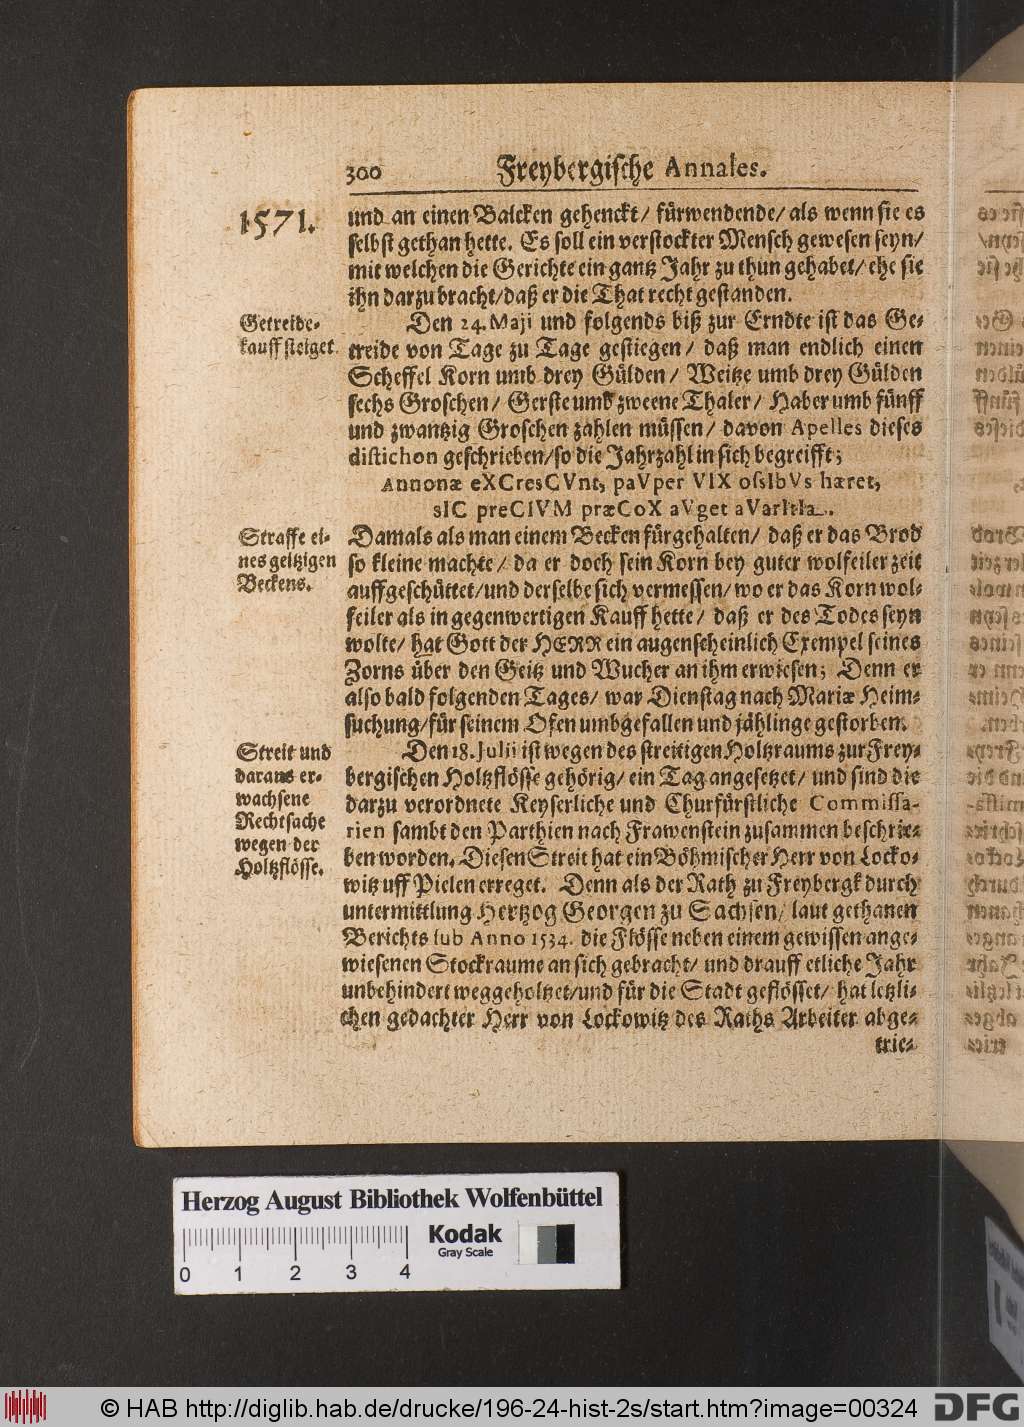 300 Freybergische Annales.
1571.
und an einen Balcken gehenckt/ fürwendende/ als wenn sie es
selbst gethan hette. Es soll ein verstockter Mensch gewesen seyn/
mit welchen die Gerichte ein gantz Jahr zu thun gehabet/ ehe sie
ihn darzu bracht/ daß er die That recht gestanden.
Getreide-
kauff steiget
Den 24. Maji und folgends biß zur Erndte ist das Ge-
treide von Tage zu Tage gestiegen/ daß man endlich einen
Scheffel Korn umb drey Gülden/ Weitze umb drey Gülden
sechs Groschen/ Gerste umb zweene Thaler/ Haber umb fünff
und zwantzig Groschen zahlen müssen/ davon Apelles dieses
distichon geschrieben/ so die Jahrzahl in sich begreifft;
Annonæ eXCresCVnt, paVper VIX ossIbVs hæret,
sIC preCIVM præCoX aVget aVarItIa.
Straffe ei-
nes geitzigen
Beckens.
Damals als man einem Becken fürgehalten/ daß er das Brod
so kleine machte/ da er doch sein Korn bey guter wolfeiler zeit
auffgeschüttet/ und derselbe sich vermessen/ wo er das Korn wol-
feiler als in gegenwertigen Kauff hette/ daß er des Todes seyn
wolte/ hat Gott der HERR ein augenscheinlich Exempel seines
Zorns über den Geitz und Wucher an ihm erwiesen; Denn er
also bald folgenden Tages/ war Dienstag nach Mariæ Heim-
suchung/ für seinem Ofen umbgefallen und jählinge gestorben.
Streit und
daraus er-
wachsene
Rechtsache
wegen der
Holtzflösse.
Den 18. Julii ist wegen des streitigen Holtzraums zur Frey-
bergischen Holtzflösse gehörig/ ein Tag angesetzet/ und sind die
darzu verordnete Keyserliche und Churfürstliche Commissa-
rien sambt den Parthien nach Frawenstein zusammen beschrie-
ben worden. Diesen Streit hat ein Böhmischer Herr von Locko-
witz uff Pielen erreget. Denn als der Rath zu Freybergk durch
untermittlung Hertzog Georgen zu Sachsen/ laut gethanen
Berichts sub Anno 1534. die Flösse neben einem gewissen ange-
wiesenen Stockraume an sich gebracht/ und drauff etliche Jahr
unbehindert weggeholtzet/ und für die Stadt geflösset/ hat letzli-
chen gedachter Herr von Lockowitz des Raths Arbeiter abge-
trie-
Herzog August Bibliothek Wolfenbüttel
Kodak
Gray Scale
0 1 2 3 4
© HAB http://diglib.hab.de/drucke/196-24-hist-2s/start.htm?image=00324
DFG